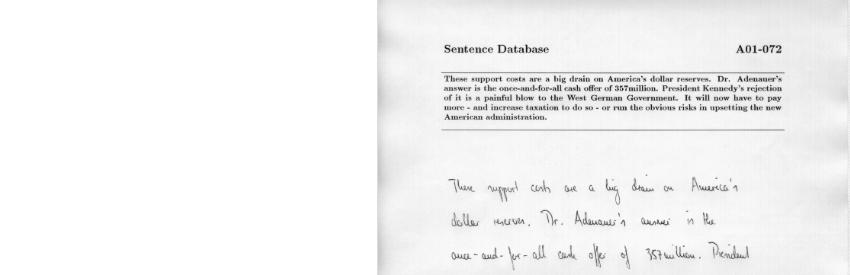 Sentence Database A01-072
These support costs are a big drain on America's dollar reserves. Dr. Adenauer's
answer is the once-and-for-all cash offer of 357million. President Kennedy's rejection
of it is a painful blow to the West German Government. It will now have to pay
more - and increase taxation to do so - or run the obvious risks in upsetting the new
American administration.
These support costs are a big drain on America's
dollar reserves. Dr. Adenauer's answer is the
once-and-for-all cash offer of 357million. President